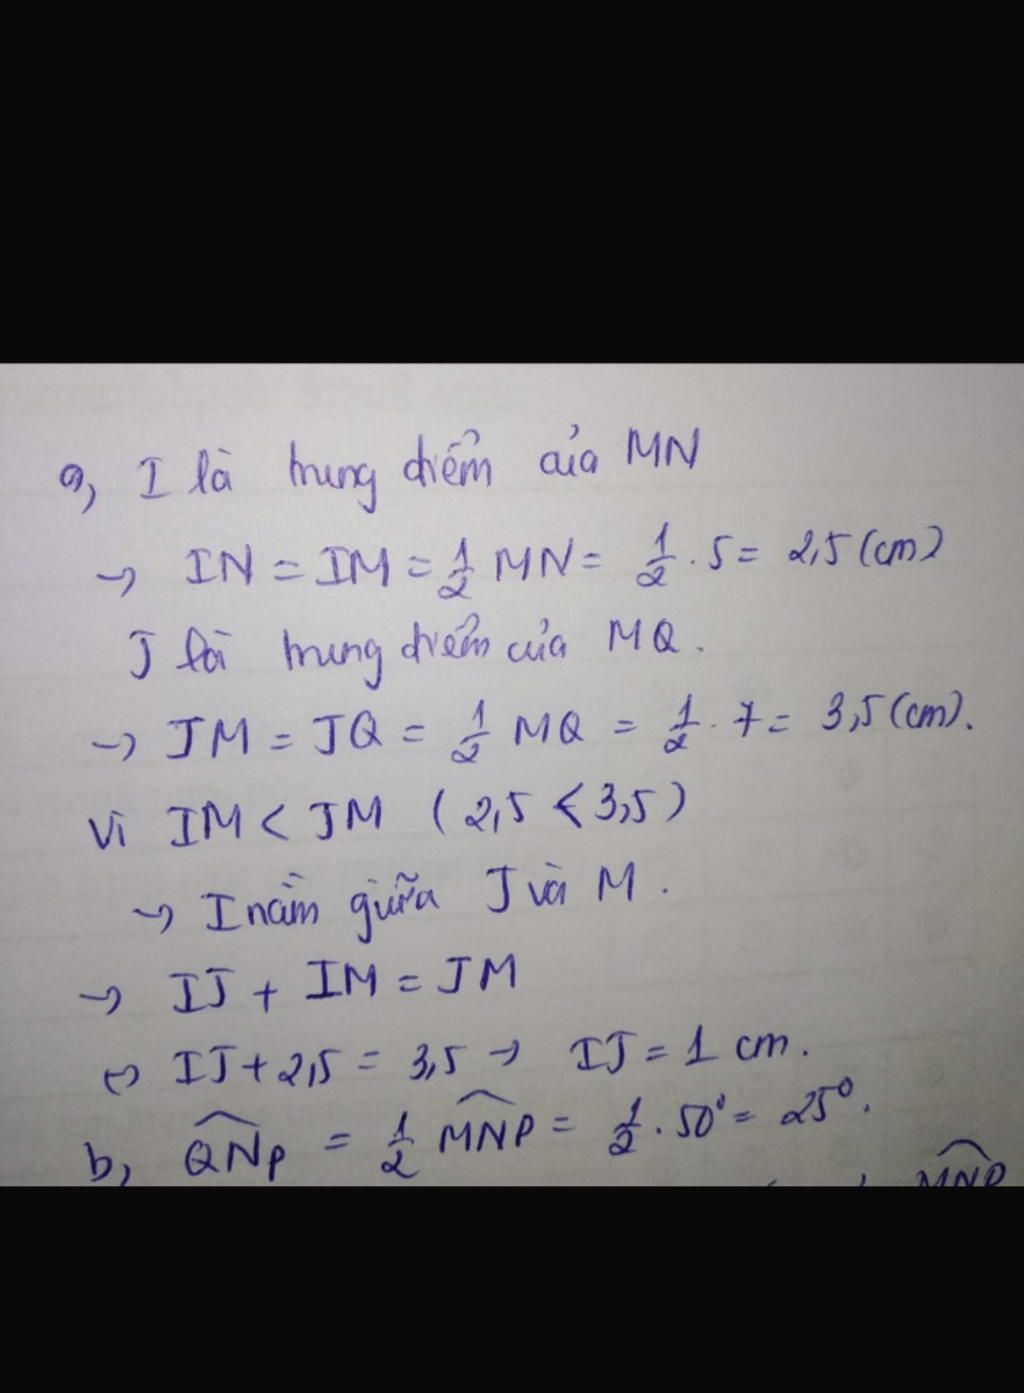 a, I là trung điểm của MN
→ IN = IM = 1/2 MN = 1/2 . 5 = 2,5 (cm)
J là trung điểm của MQ.
→ JM = JQ = 1/2 MQ = 1/2 . 7 = 3,5 (cm).
Vì IM < JM (2,5 < 3,5)
→ I nằm giữa J và M.
→ IJ + IM = JM
⇔ IJ + 2,5 = 3,5 → IJ = 1 cm.
b, \widehat{QNP} = 1/2 \widehat{MNP} = 1/2 . 50° = 25°.
\widehat{MNP}